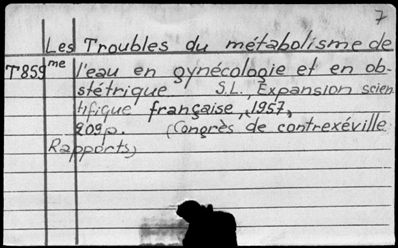 7
Les Troubles du métabolisme de
T859me l'eau en gynécologie et en ob-
stétrique S.L., Expansion scien
tifique française, 1957,
209p. (Congrès de contrexéville
Rapports)